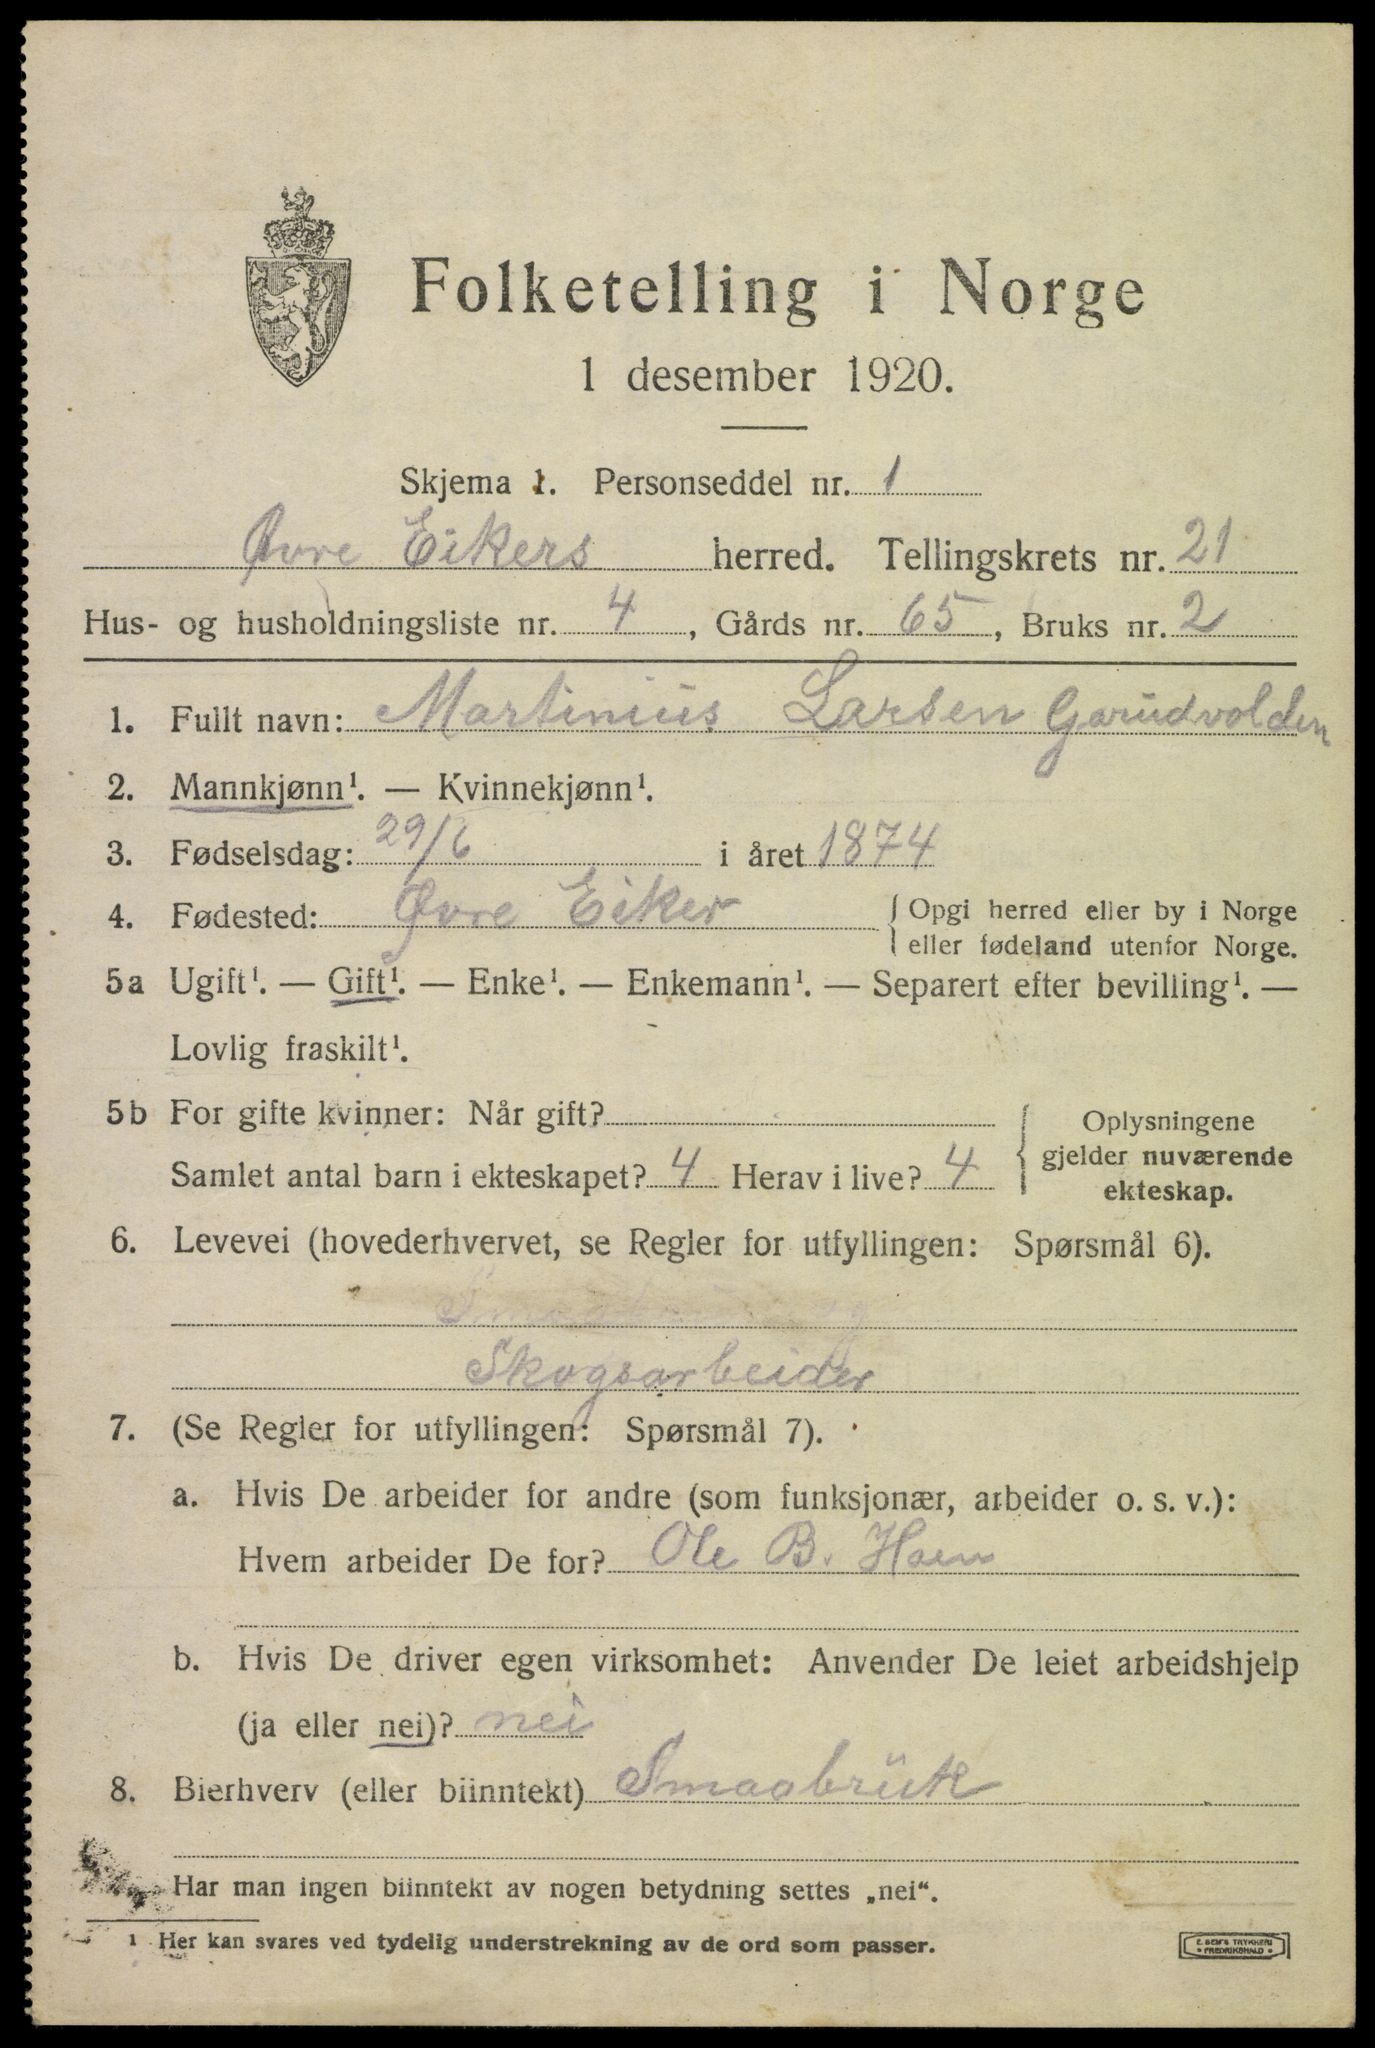 Folketelling i Norge
1 desember 1920.
Skjema 1. Personseddel nr. 1
Øvre Eikers herred. Tellingskrets nr. 21
Hus- og husholdningsliste nr. 4, Gårds nr. 65, Bruks nr. 2
1. Fullt navn: Martinius Larsen
2. Mannkjønn¹. — Kvinnekjønn¹.
3. Fødselsdag: 29/6 i året 1874
4. Fødested: Øvre Eiker { Opgi herred eller by i Norge
eller fødeland utenfor Norge.
5a Ugift¹. — Gift¹. — Enke¹. — Enkemann¹. — Separert efter bevilling¹. —
Lovlig fraskilt¹.
5b For gifte kvinner: Når gift?
Samlet antal barn i ekteskapet? 4 Herav i live? 4
{ Oplysningene
gjelder nuværende
ekteskap.
6. Levevei (hovederhvervet, se Regler for utfyllingen: Spørsmål 6).
Skogsarbeider
7. (Se Regler for utfyllingen: Spørsmål 7).
a. Hvis De arbeider for andre (som funksjonær, arbeider o. s. v.):
Hvem arbeider De for? Ole B. Hoen
b. Hvis De driver egen virksomhet: Anvender De leiet arbeidshjelp
(ja eller nei)? nei
8. Bierhverv (eller biinntekt) Smaabrük
Har man ingen biinntekt av nogen betydning settes „nei“.
¹ Her kan svares ved tydelig understrekning av de ord som passer.
E. SEM'S TRYKKERI
• FREDRIKSHALD •